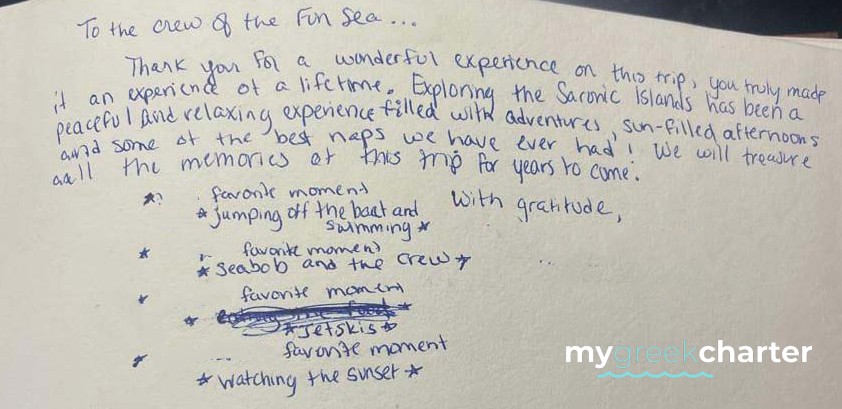 To the crew of the Fun Sea...
Thank you for a wonderful experience on this trip, you truly made
it an experience of a lifetime. Exploring the Saronic Islands has been a
peaceful and relaxing experience filled with adventures, sun-filled afternoons
and some of the best naps we have ever had! We will treasure
aall the memories of this trip for years to come.
With gratitude,
favorite moment
*jumping off the boat and
swimming*
* favorite moment
*seabob and the crew*
* favorite moment
* *
*Jetskis*
* ... favorite moment
*watching the sunset*
mygreekcharter